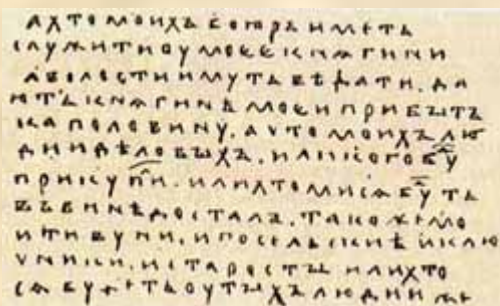 а хто моихъ боꙗръ иметь
служити оу моеѣ кнѧгини
а волости имуть вѣдати. да
ють кнѧгинѣ моеи прибытъ
ка половину. а что моихъ лю
дии дѣловыхъ. или кого бу
прикупи. или хто ми сѧ бу ть
въ винѣ досталъ. тако же мо
и тивуни. и посельскиѣ и клю
чники. и старосты или хто
сѧ будеть оу тыхъ людии